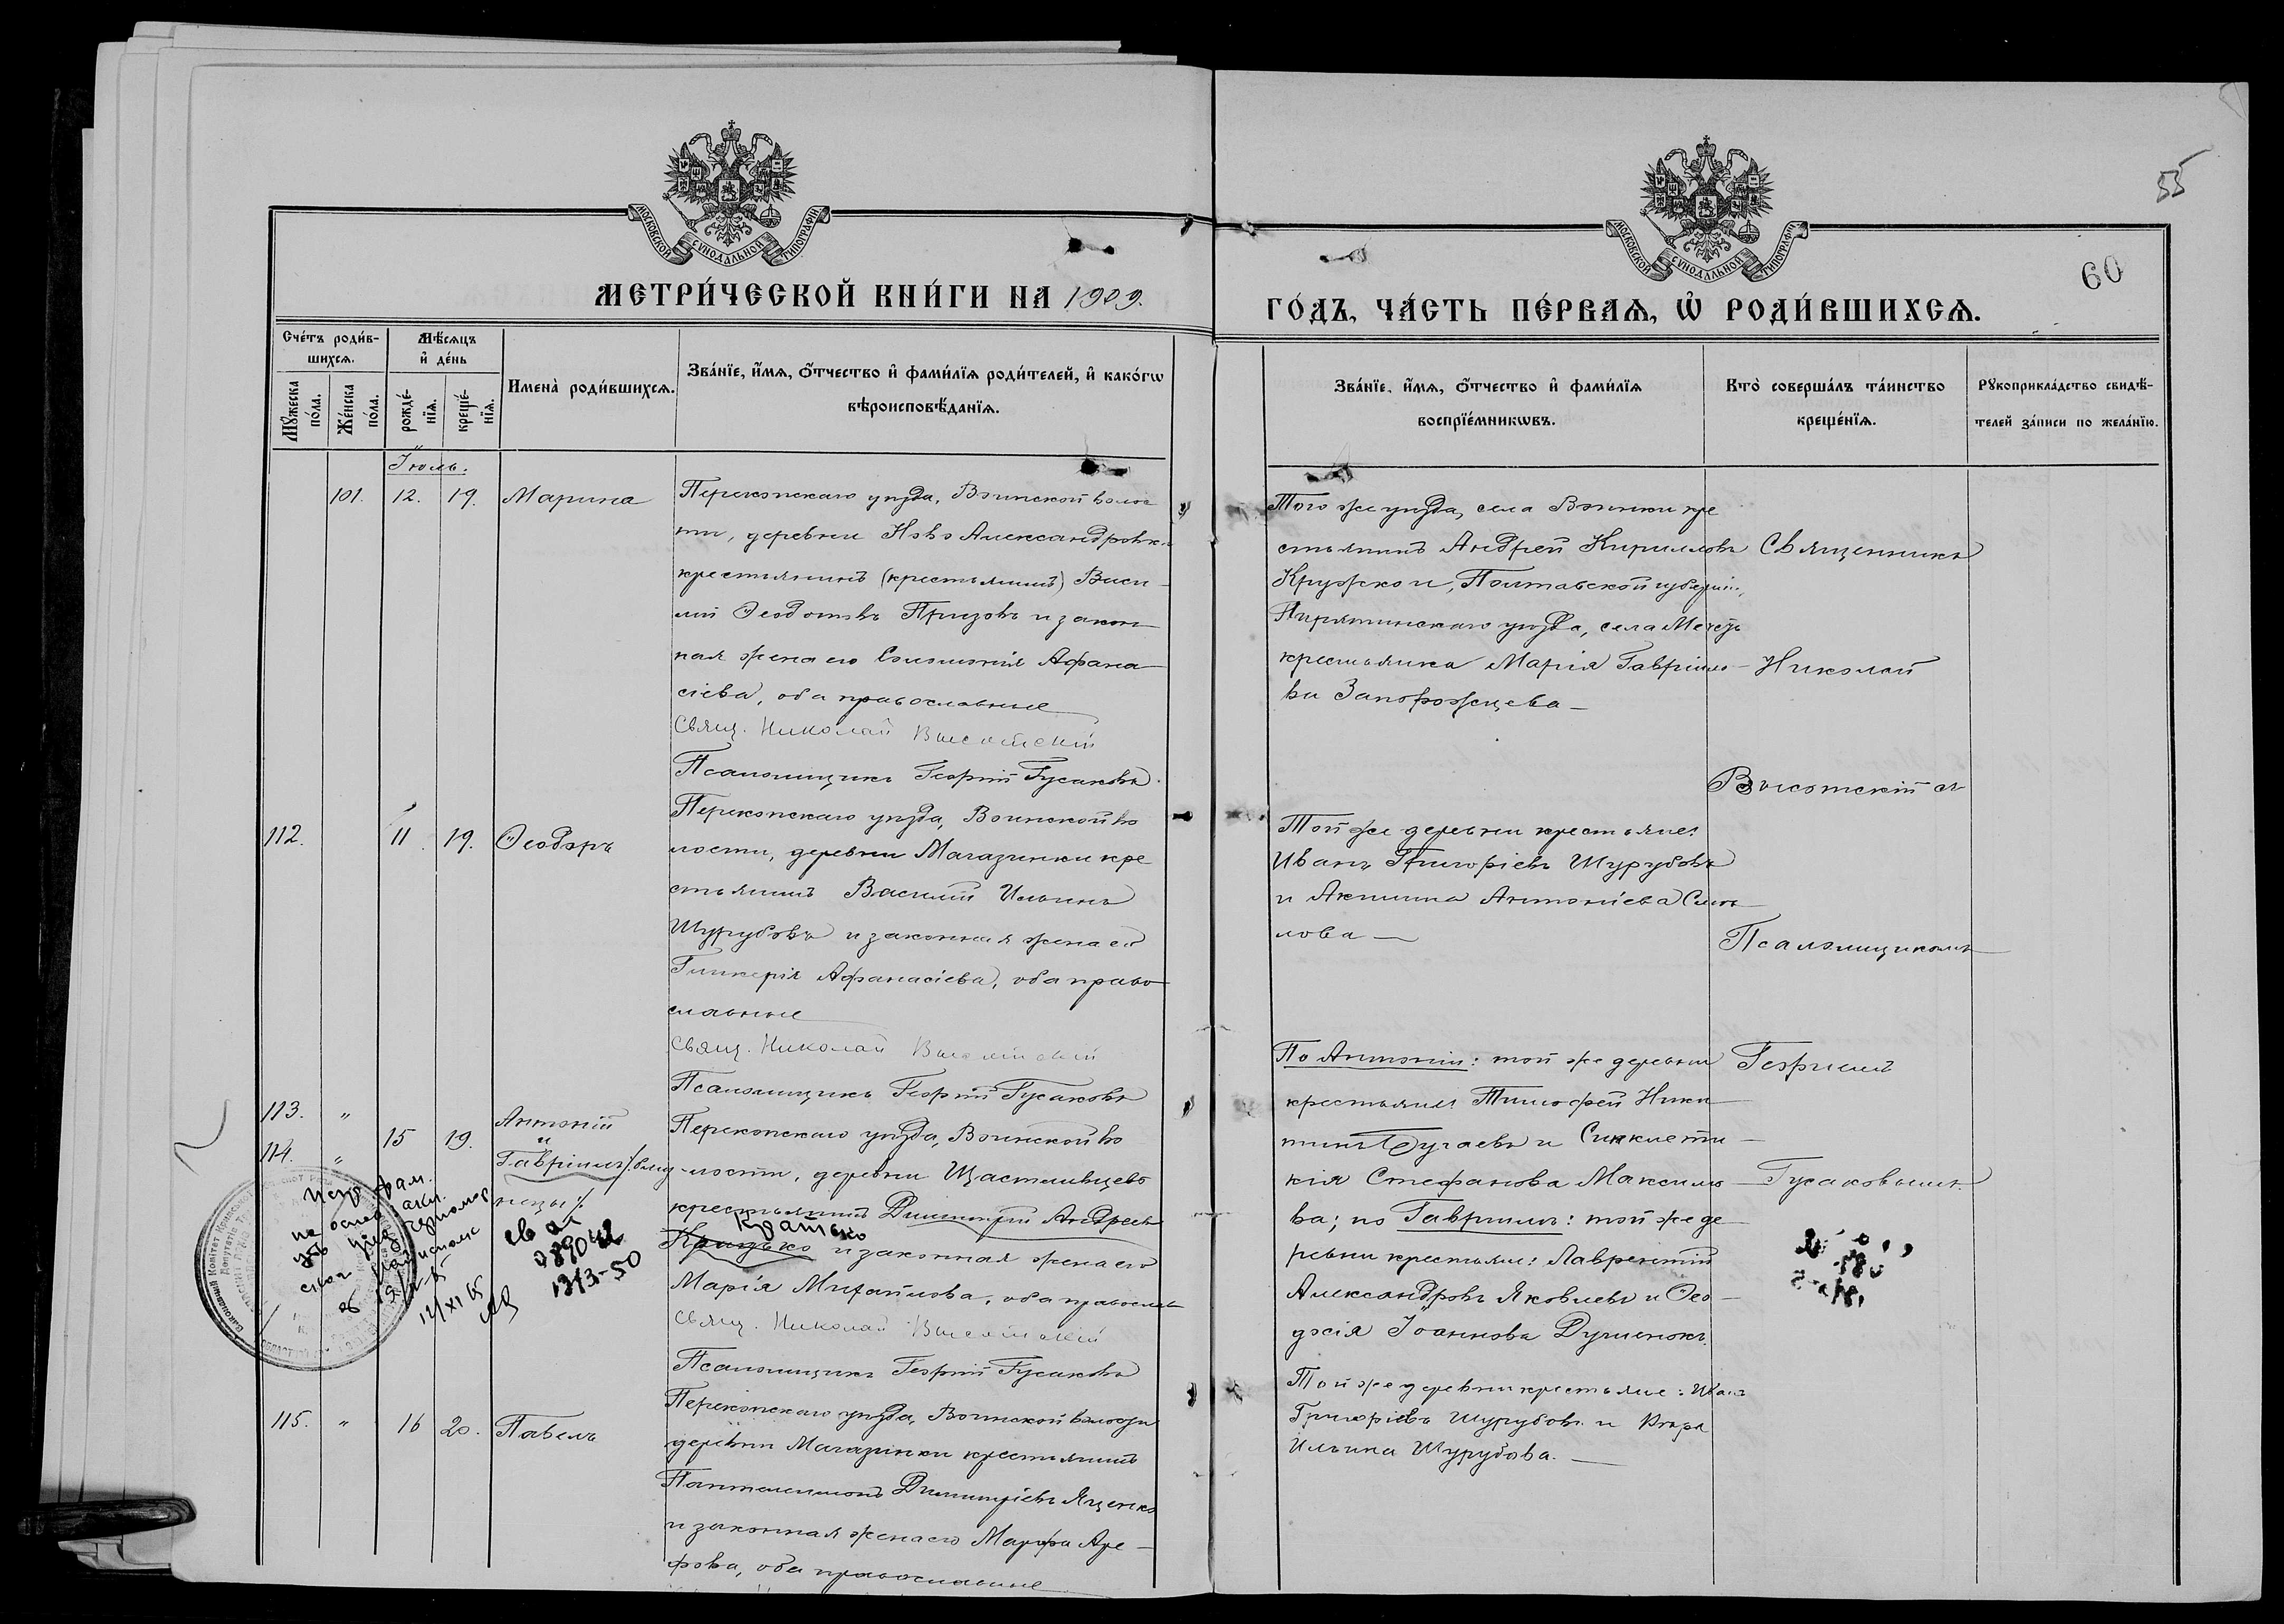 55
60
МОСКОВСКОЙ СѴНОДАЛЬНОЙ ТИПОГРАФІИ
МОСКОВСКОЙ СѴНОДАЛЬНОЙ ТИПОГРАФІИ
МЕТРИ́ЧЕСКОЙ КНИ́ГИ НА 1909.
ГО́ДЪ, ЧА́СТЬ ПЕ́РВАѦ, Ѽ РОДИ́ВШИХСѦ.
Сче́тъ роди́в-
шихсѧ.
Мꙋжеска по́ла.
Же́нска по́ла.
Мѣ́сѧцъ
и҆ де́нь
рожде́-нїѧ.
креще́-нїѧ.
Имена̀ роди́вшихсѧ.
Зва́нїе, и҆́мѧ, о҆́тчество и҆ фами́лїѧ роди́телей, и҆ како́гѡ
вѣроисповѣ́данїѧ.
Зва́нїе, и҆́мѧ, о҆́тчество и҆ фами́лїѧ
воспрїе́мникѡвъ.
Кто̀ соверша́лъ та́инство
креще́нїѧ.
Рꙋкоприкла́дство свидѣ́-
телей за́писи по жела́нїю.
Іюль.
101. 12. 19. Марина
Перекопскаго уѣзда, Воинской волос
ти, деревни Ново Александровки
крестьянинъ (крестьянинъ) Васи-
лій Ѳеодотовъ Призовъ и закон
ная жена его Соломонія Афана
сіева, оба православные
Свящ. Николай Высотскій
Псаломщикъ Георгій Гусаковъ.
Того же уѣзда, села Воинки кре
стьянинъ Андрей Кирилловъ
Кружко и, Полтавской губерніи,
Пирятинскаго уѣзда, села
крестьянка Марія Гавріило
ва Запорожцева
Священникъ
Николай
Высотскій съ
Псаломщикомъ
Георгіемъ
Гусаковымъ.
112. 11. 19. Ѳеодоръ
Перекопскаго уѣзда, Воинской во
лости, деревни Магазинки кре
стьянинъ Василій Ильинъ
Шурубовъ и законная жена его
Гликерія Афанасіева, оба право
славные
Свящ. Николай Высотскій
Псаломщикъ Георгій Гусаковъ
Той же деревни крестьяне:
Иванъ Григоріевъ Шурубовъ
и Акилина Антоніева
лова
113. "
114. "
15 19.
Антоній
и
Гавріилъ /близ
нецы/.
Перекопскаго уѣзда, Воинской во
лости, деревни Щастливцево
крестьянинъ Димитрій Андреевъ
Кратько
и законная жена его
Марія Михайлова, оба православ
Свящ. Николай Высотскій
Псаломщикъ Георгій Гусаковъ
По Антоніи: той же деревни
крестьяне: Тимофей Ники
тинъ Бугаевъ и Синклети
кія Стефанова Максимо
ва; по Гавріилѣ: той же де
ревни крестьяне: Лаврентій
Александровъ Яковлевъ и Ѳео
досія Іоаннова
12/XI 65
1313-50
115. " 16 20. Павелъ
Перекопскаго уѣзда, Воинской волости
деревни Магазинки крестьянинъ
Пантелеимонъ Димитріевъ Яценко
и законная жена его Марфа Аре-
фова, оба православные
Той же деревни крестьяне: Иванъ
Григоріевъ Шурубовъ и
Ильина Шурубова.